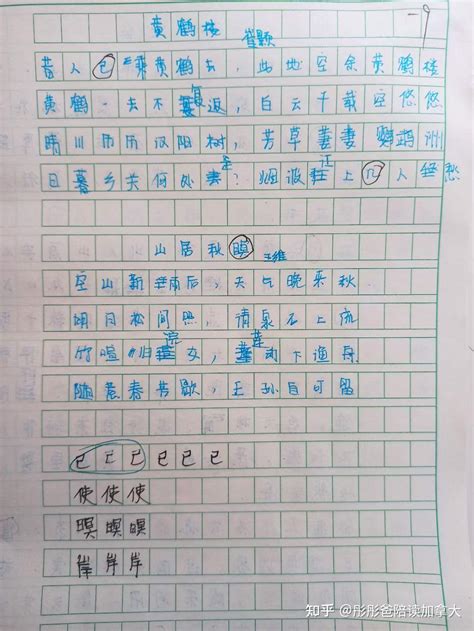 黄鹤楼 崔颢 -9
昔人已乘黄鹤去,此地空余黄鹤楼
黄鹤一去不复返,白云千载空悠悠
晴川历历汉阳树,芳草萋萋鹦鹉洲
日暮乡关何处是?烟波江上几人愁
山居秋瞑 王维
空山新雨后,天气晚来秋
明月松间照,清泉石上流
竹喧归浣女,莲动下渔舟
随意春芳歇,王孙自可留
已已已已已已
使使使
暝暝暝
岸岸岸
知乎 @彤彤爸陪读加拿大